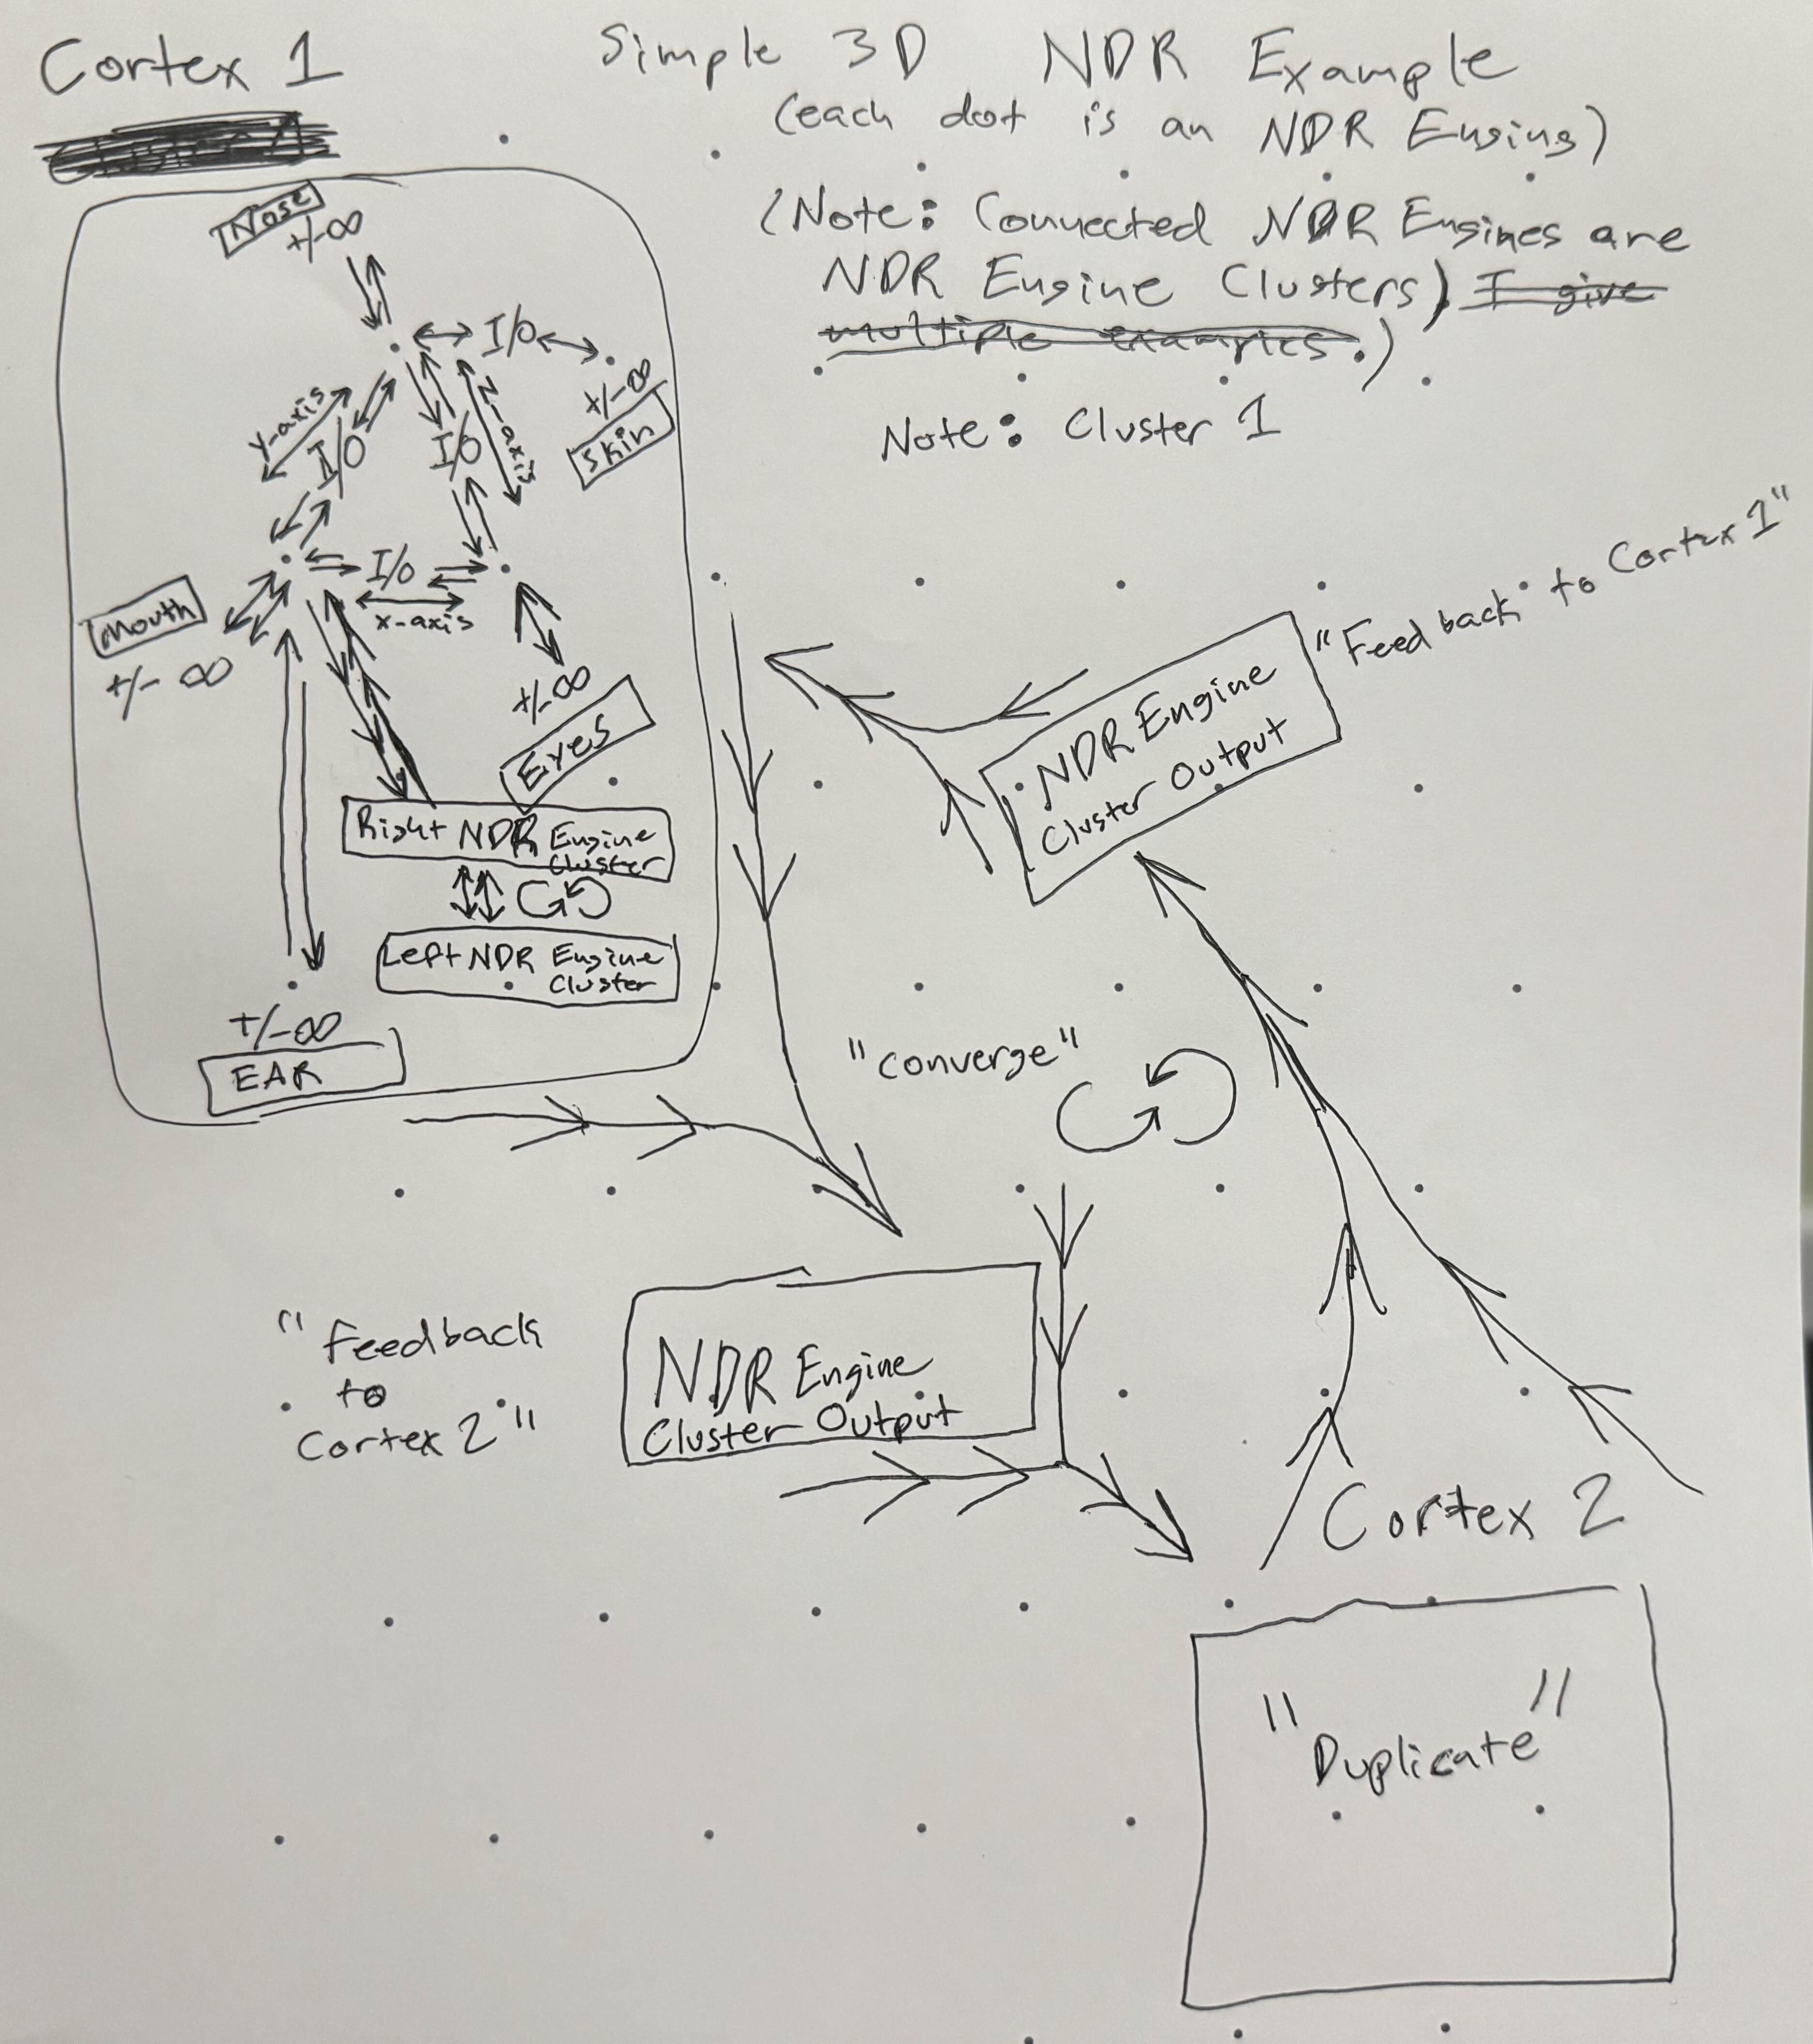 Cortex 1
Simple 3D NDR Example
(each dot is an NDR Engine)
(Note: Connected NDR Engines are
NDR Engine Clusters) I give
multiple examples.)
Note: Cluster 1
Nose
+/-∞
I/O
+/-∞
Skin
y-axis
I/O
I/O
z-axis
I/O
x-axis
Mouth
+/- ∞
+/-∞
Eyes
Right NDR Engine
Cluster
Left NDR Engine
Cluster
+/-∞
EAR
"Feedback to Cortex 1"
NDR Engine
Cluster Output
"converge"
"feedback
to
Cortex 2"
NDR Engine
Cluster Output
Cortex 2
"Duplicate"